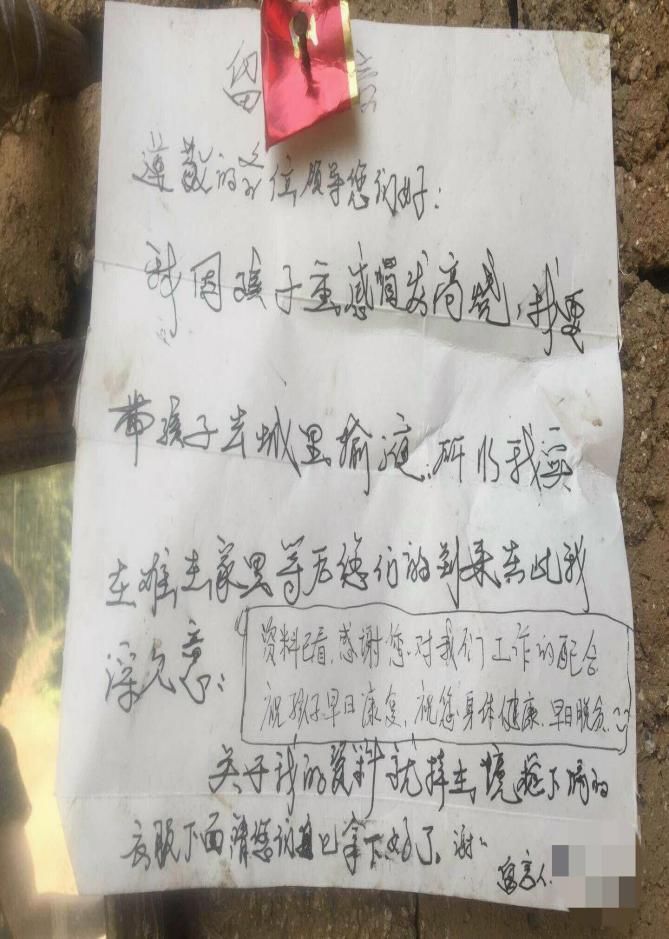 留言
遵敬的各位领导您们好:
我因孩子重感冒发高烧,我要
带孩子去城里输液,所以我实
在难在家里等后您们的到来在此我
深欠意:
资料已看,感谢您对我们工作的配合
祝孩子早日康复,祝您身体健康,早日脱贫
关于我的资料就挂在下的
衣服下面请您们自己拿下好了,谢
留言人